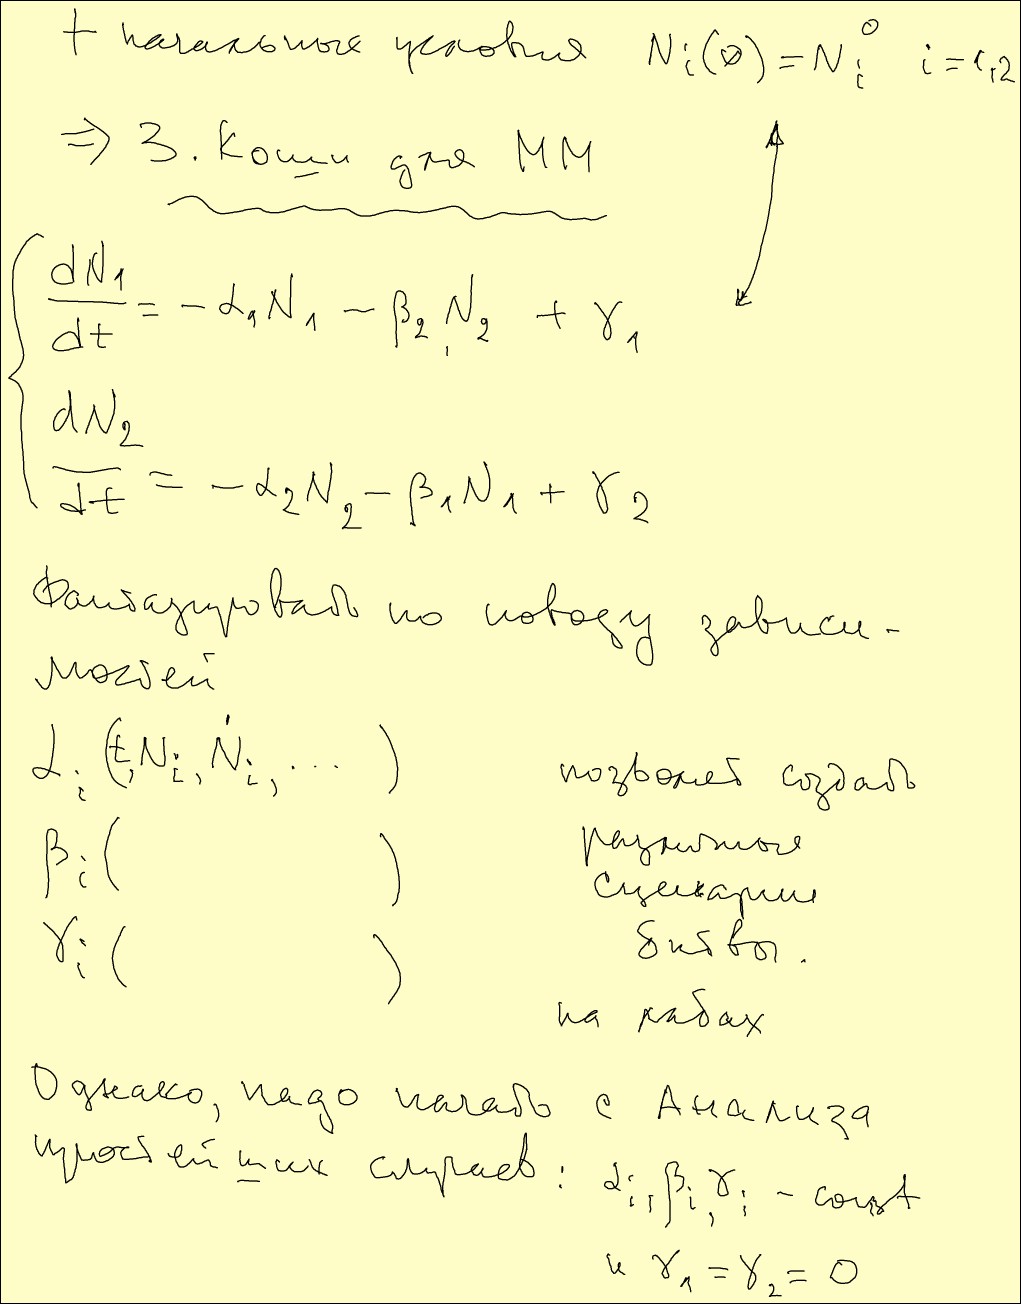 + начальные условия N_i(0) = N_i^0 i = 1,2
⇒ З. Коши для ММ
dN_1/dt = -α_1 N_1 - β_2 N_2 + γ_1
dN_2/dt = -α_2 N_2 - β_1 N_1 + γ_2
Фантазировать по поводу зависи-
мостей
α_i (t, N_i, Ṅ_i, ... ) позволяет создать
β_i ( ) различные
сценарии
γ_i ( ) битвы.
на лабах
Однако, надо начать с Анализа
простейших случаев: α_i, β_i, γ_i - const
и γ_1 = γ_2 = 0